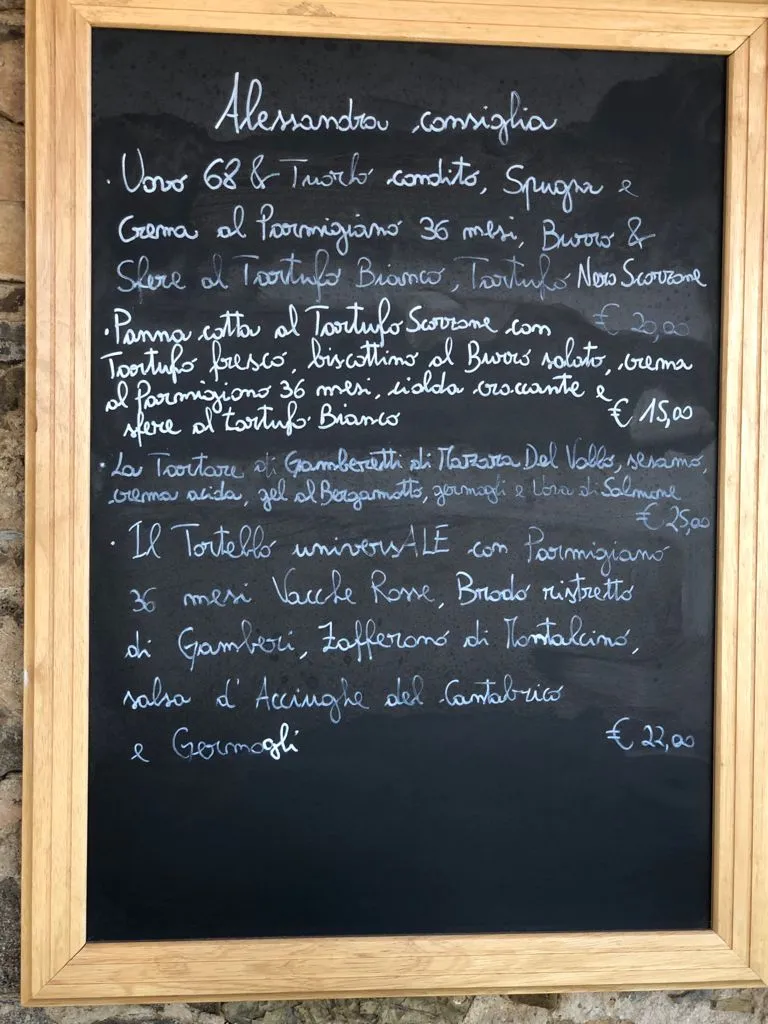 Alessandra consiglia
· Uovo 68 & Tuorlo condito, Spugna e
Crema al Parmigiano 36 mesi, Burro &
Sfere al Tartufo Bianco, Tartufo Nero Scorzone
€ 20,00
· Panna cotta al Tartufo Scorzone con
Tartufo fresco, biscottino al Burro salato, crema
al Parmigiano 36 mesi, cialda croccante e
sfere al tartufo Bianco
€ 15,00
· La Tartare di Gamberetti di Mazara Del Vallo, sesamo,
crema acida, gel al Bergamotto, germogli e Uova di Salmone
€ 25,00
· Il Tortello universALE con Parmigiano
36 mesi Vacche Rosse, Brodo ristretto
di Gamberi, Zafferano di Montalcino,
salsa d'Acciughe del Cantabrico
e Germogli
€ 22,00